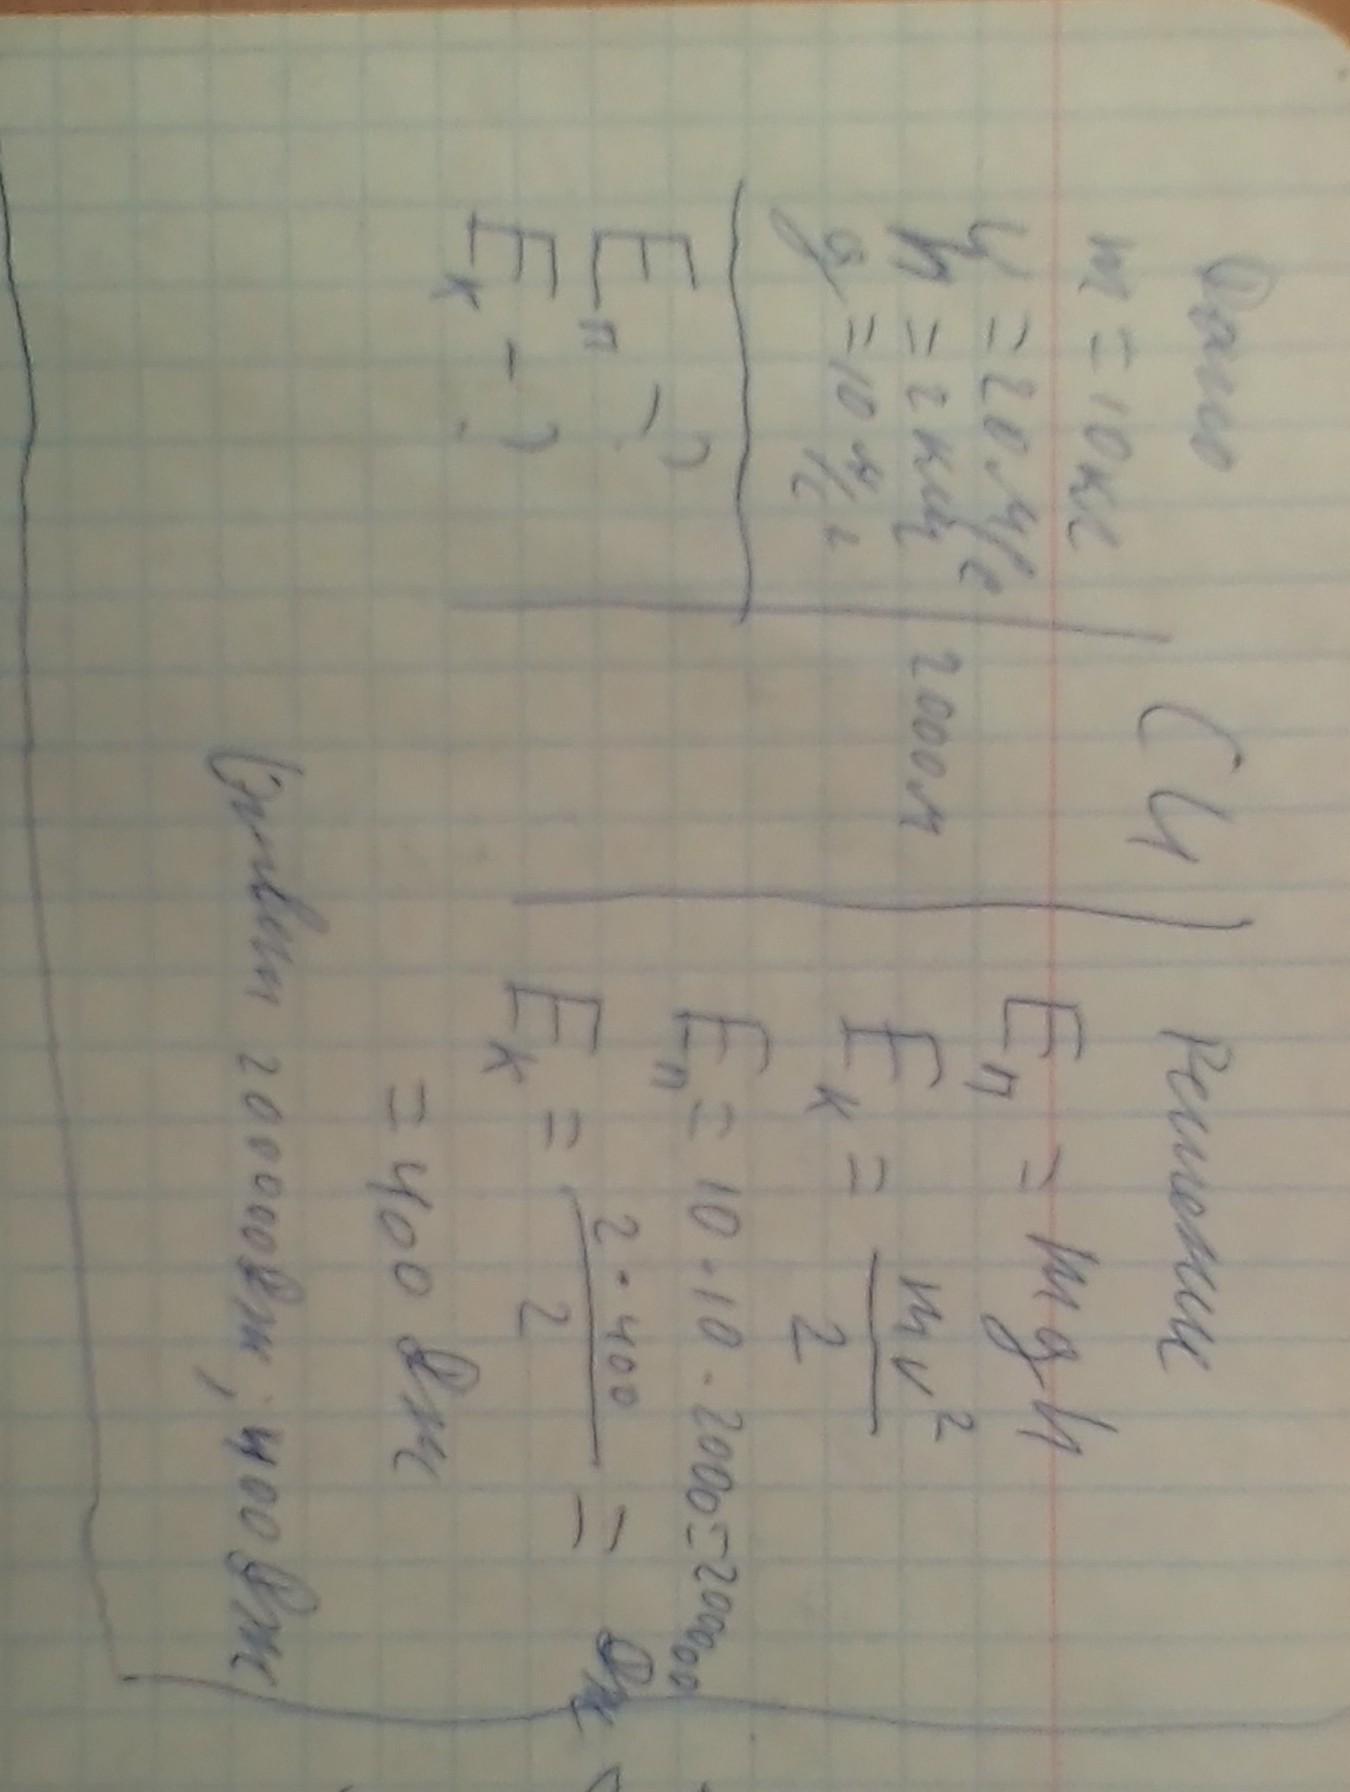 Дано
m = 10 кг
V = 20 м/с
h = 2 км
g = 10 м/с²
Eп - ?
Eк - ?
СИ
2000м
Решение
Eп = mgh
Eк = mv²/2
Eп = 10 · 10 · 2000 = 200000
Дж
Eк = 2 · 400/2 =
= 400 Дж
Ответ 200000Дж, 400Дж